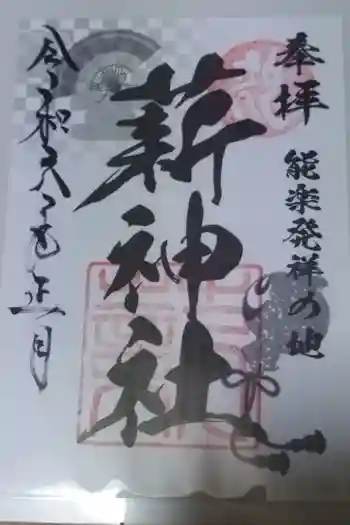 奉拝
能楽発祥の地
薪神社
令和八年正月